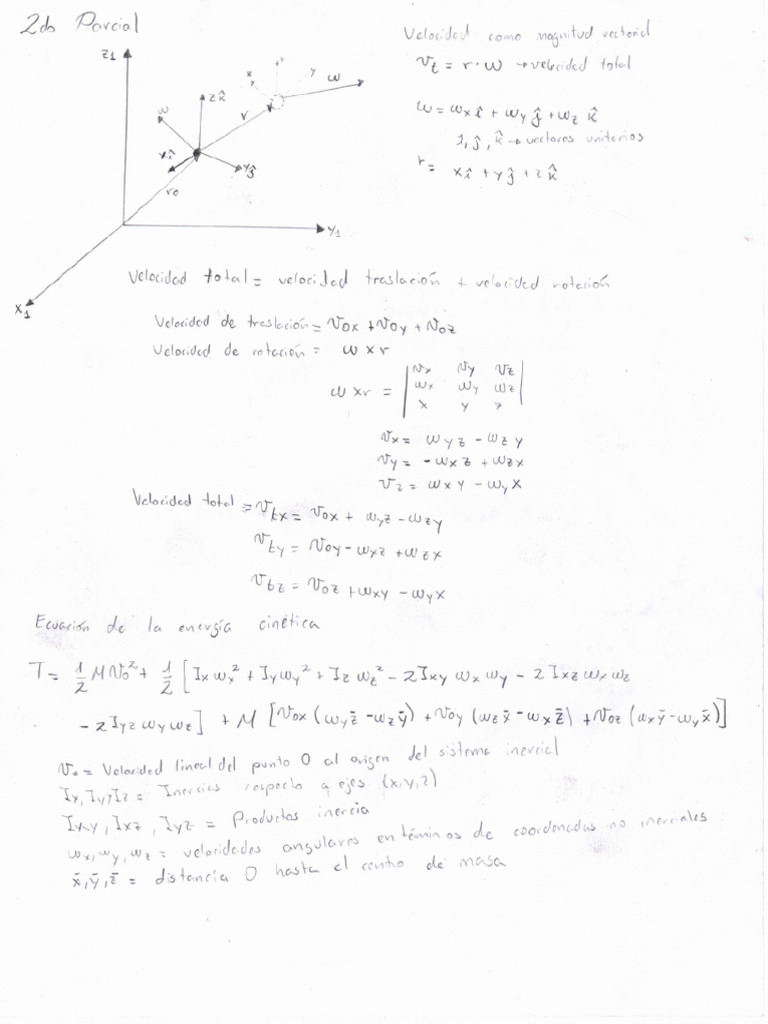 2do Parcial
Velocidad como magnitud vectorial
v_t = r · ω → velocidad total
ω = ωx î + ωy ĵ + ωz k̂
î, ĵ, k̂ → vectores unitarios
r = xî + yĵ + zk̂
z1
z k̂
ω
x
y
ω
r
xî
yĵ
ro
Y1
X1
Velocidad total = velocidad traslación + velocidad rotación
Velocidad de traslación = v0x + v0y + v0z
Velocidad de rotación = ω x r
ω x r = | vx vy vz |
| ωx ωy ωz |
| x y z |
vx = ωyz - ωzy
vy = -ωxz + ωzx
vz = ωxy - ωyx
Velocidad total = vtx = v0x + ωyz - ωzy
vty = v0y - ωxz + ωzx
vtz = v0z + ωxy - ωyx
Ecuación de la energía cinética
T = 1/2 M v0² + 1/2 [Ix ωx² + Iy ωy² + Iz ωz² - 2Ixy ωx ωy - 2Ixz ωx ωz
- 2Iyz ωy ωz] + M [v0x (ωy z̄ - ωz ȳ) + v0y (ωz x̄ - ωx z̄) + v0z (ωx ȳ - ωy x̄)]
v0 = Velocidad lineal del punto O al origen del sistema inercial
Ix, Iy, Iz = Inercias respecto a ejes (x,y,z)
Ixy, Ixz, Iyz = Productos inercia
ωx, ωy, ωz = velocidades angulares en téminos de coordenadas no inerciales
x̄, ȳ, z̄ = distancia O hasta el centro de masa